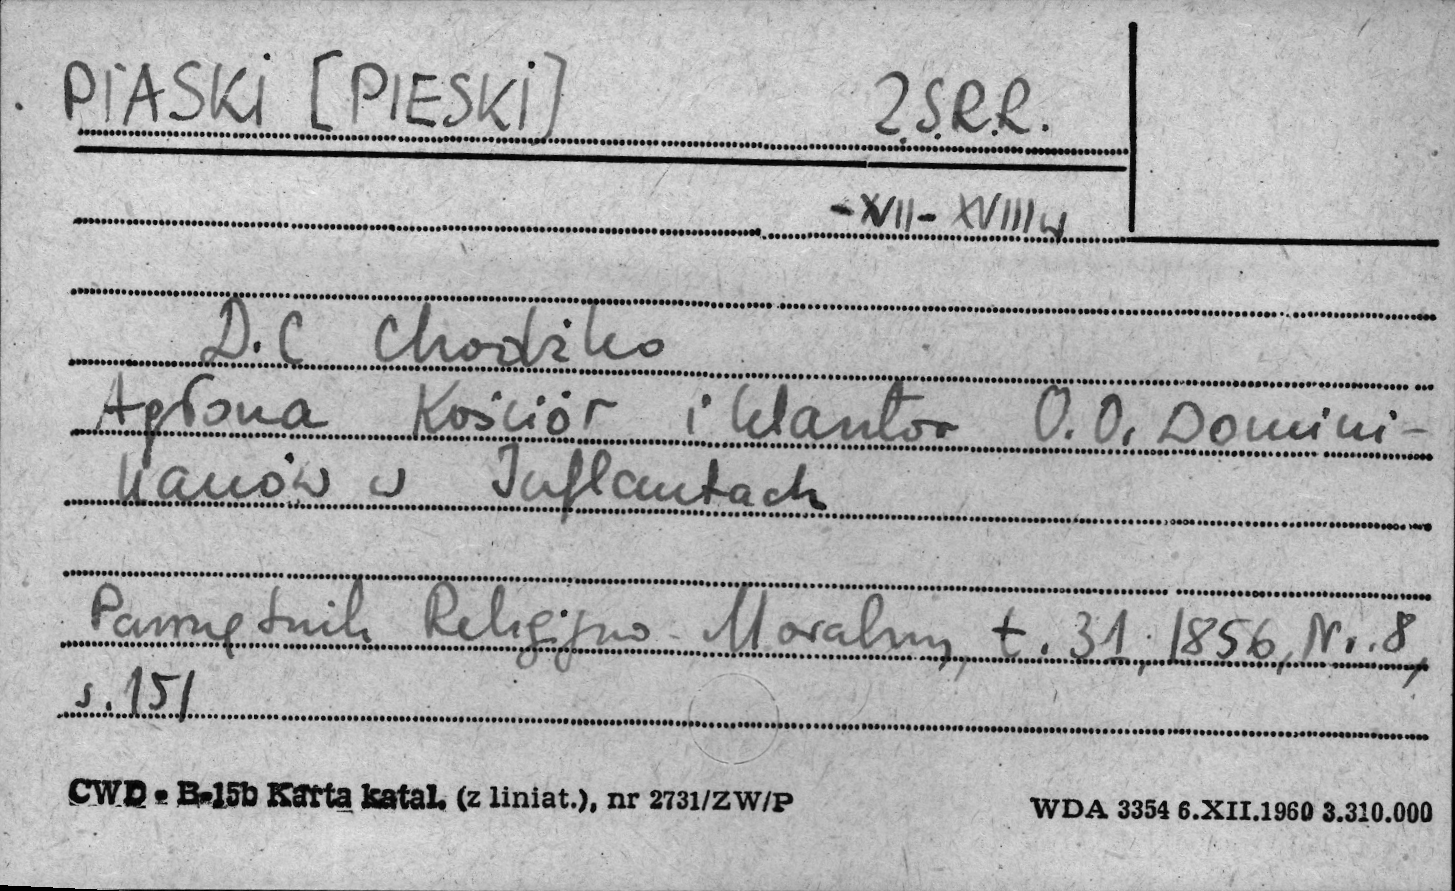 PIASKI [PIESKI] Z.S.R.R.
-XVII- XVIII w
D. C Chodźko
Agłona Kościół i klasztor O.O. Domini-
kanów w Inflantach
Pamiętnik Religijno-Moralny, t. 31, 1856, Nr. 8,
s. 151
CWD - B-15b Karta katal. (z liniat.), nr 2731/ZW/P WDA 3354 6.XII.1960 3.310.000